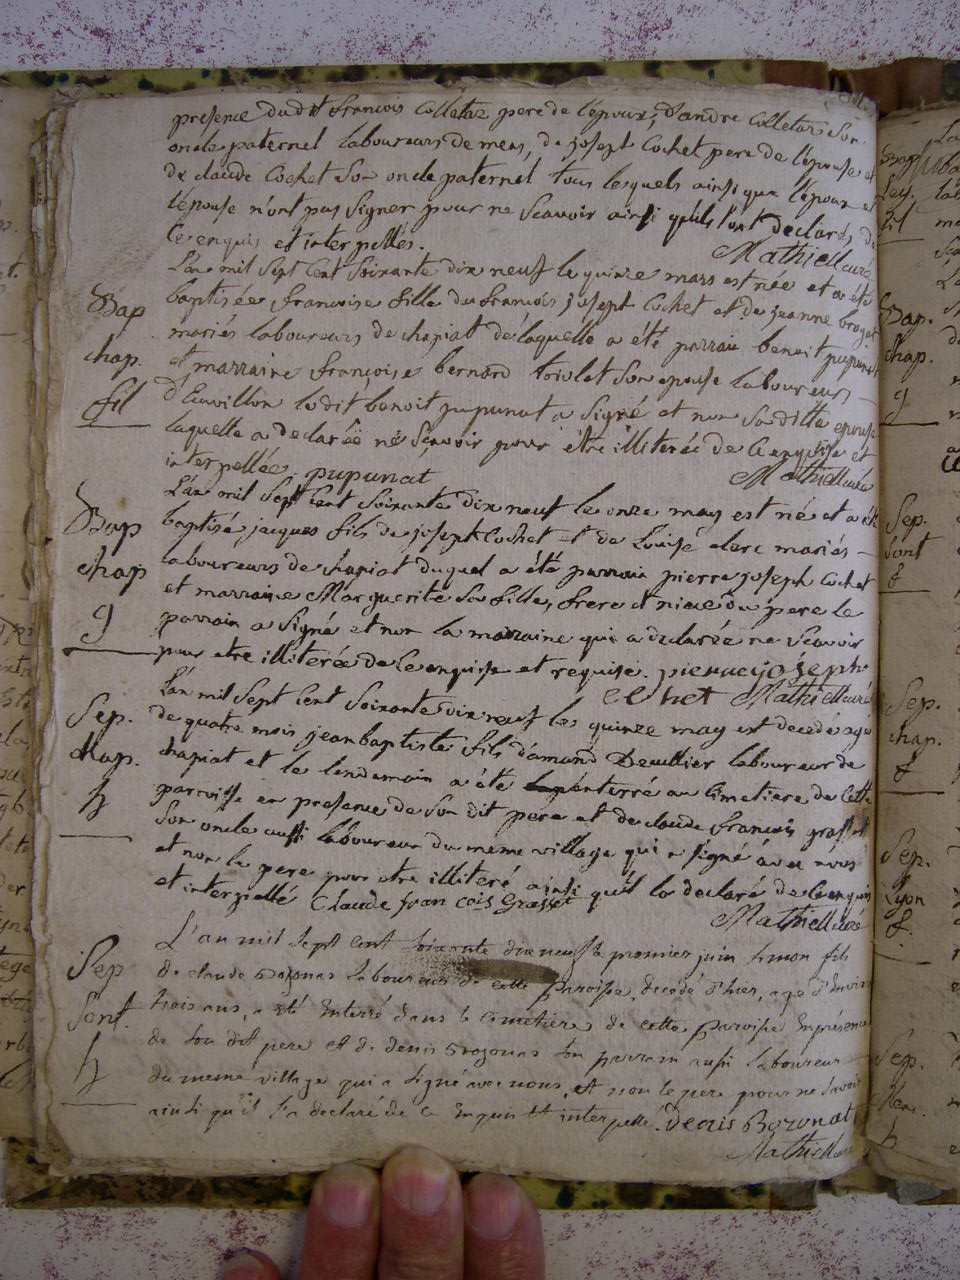 presence dudit françois Colletaz pere de l'epoux, d'andré Colletaz son
oncle paternel laboureurs de mens, de joseph Cochet pere de l'epouse et
de claude Cochet son oncle paternel tous lesquels ainsi que l'epoux et
l'epouse n'ont pas signer pour ne scavoir ainsi quils l'ont declarés de
ce enquis et interpellés. Mathieu curé
L'an mil sept cent soixante dix neuf le quinze mars est née et a été
Bap baptisée françoise fille du françois joseph Cochet et de jeanne broyat
mariés laboureurs de chapiat de laquelle a été parrain benoit pupunat
chap. et marraine françoise bernard son epouse laboureurs
fil ledit benoit pupunat a signé et non sa ditte epouse
laquelle a declarée ne scavoir pour être illiterée de ce enquise et
interpellée. pupunat Mathieu curé
L'an mil sept cent soixante dix neuf le onze may est né et a été
Bap baptisé jacques fils de joseph Cochet et de Louise clerc mariés
chap laboureurs de chapiat duquel a été parrain pierre joseph Cochet
et marraine Marguerite sa fille, frere et niece du pere le
g parrain a signé et non la marraine qui a declarée ne scavoir
pour etre illiterée de ce enquise et requise. pierre joseph
Cochet Mathieu curé
L'an mil sept cent soixante dix neuf le quinze may est decedé agé
Sep. de quatre mois jean baptiste fils d'amand laboureur de
chap. chapiat et le lendemain a été enterré au Cimetiere de cette
h parroisse en presence de son dit pere et de claude françois grasset
son oncle aussi laboureur du meme village qui a signé avec nous
et non le pere pour etre illiteré ainsi qu'il l'a declaré de ce enquis
et interpellé Claude francois Grasset
Mathieu curé
L'an mil sept cent soixante dix neuf le premier juin simon fils
Sep de claude Bozonat laboureur de cette paroisse, decedé d'hier, agé d'environ
Sont trois ans, a été enterré dans le cimetiere de cette paroisse en présence
de son dit pere et de denis Bozonat son parrain aussi laboureur
h du meme village qui a signé avec nous, et non le pere pour ne savoir
ainsi qu'il l'a declaré de ce enquis et interpellé. Denis Bozonat
Mathieu curé
Bap
Bap.
chap.
g
Sep.
Sont
Sep.
chap.
Sep.
Lyon
Sep.
h